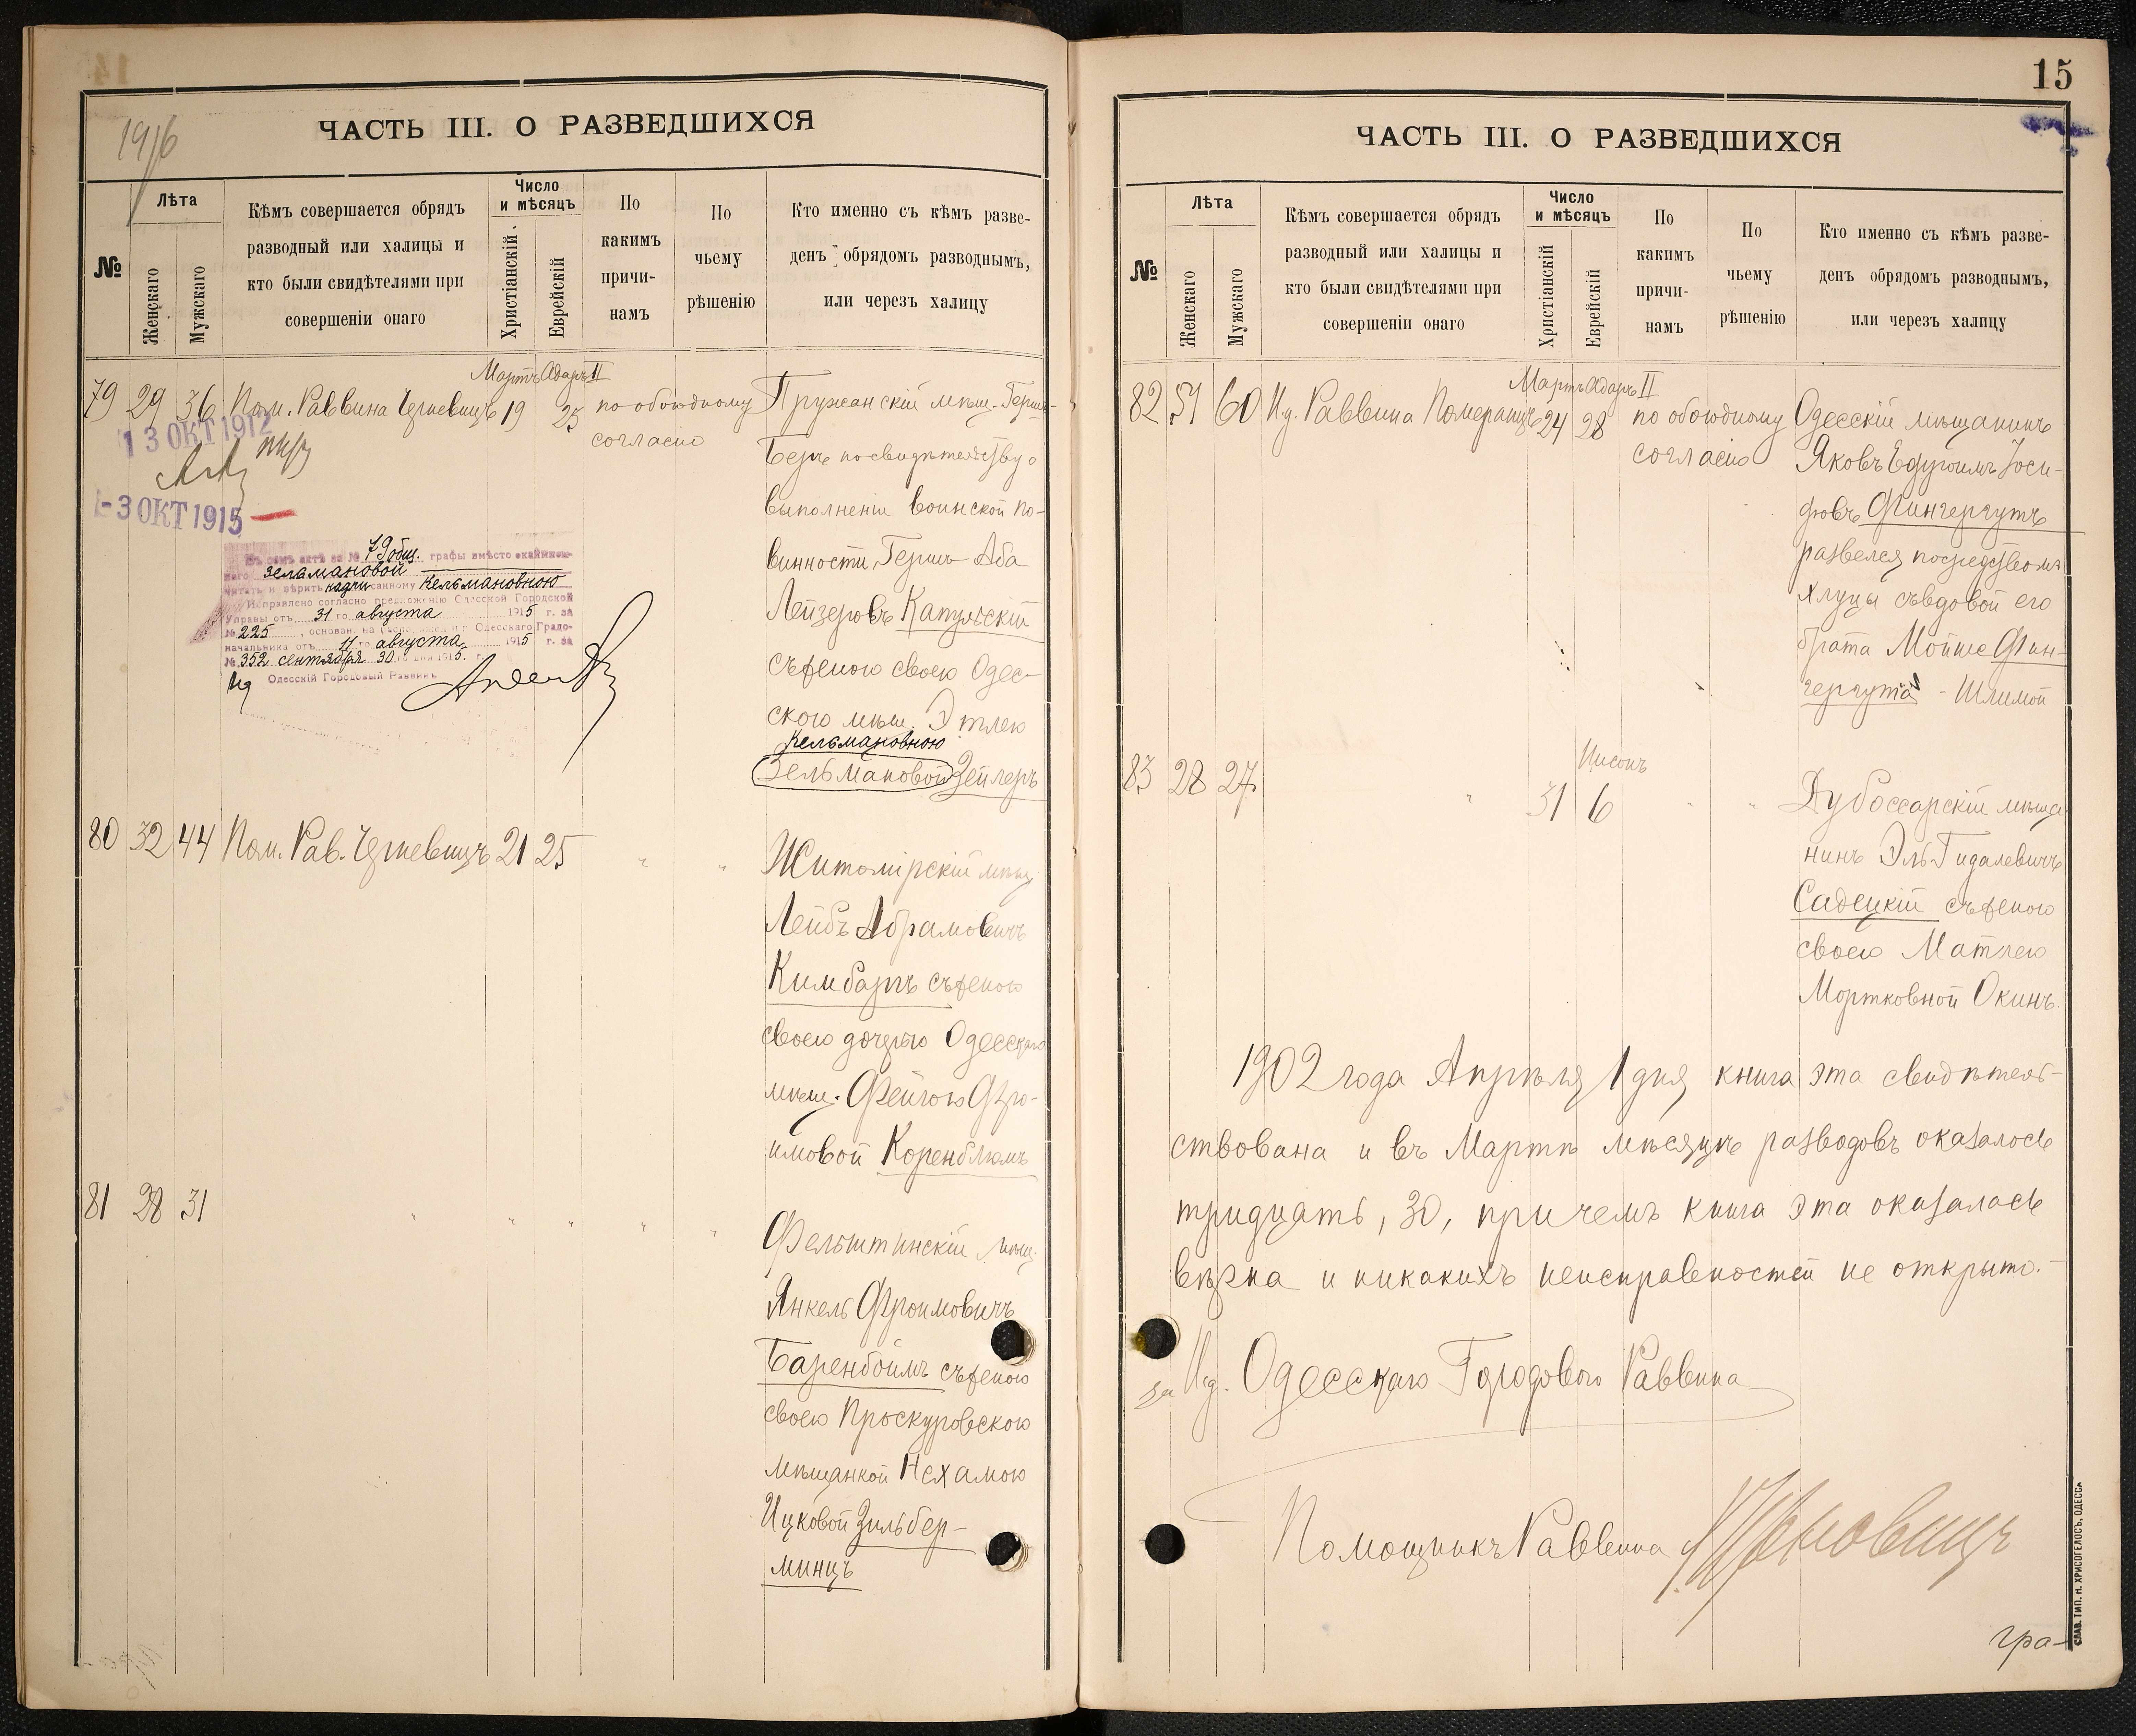 1916
ЧАСТЬ III. О РАЗВЕДШИХСЯ
№
Лѣта
Женскаго
Мужскаго
Кѣмъ совершается обрядъ
разводный или халицы и
кто были свидѣтелями при
совершеніи онаго
Число
и мѣсяцъ
Христіанскій
Еврейскій
По
какимъ
причи-
намъ
По
чьему
рѣшенію
Кто именно съ кѣмъ разве-
денъ обрядомъ разводнымъ,
или черезъ халицу
Мартъ Адаръ II
79 29 36 Пом. Раввина 19 25 по обоюдному
согласію
Пружанскій мѣщ. Гершъ-
Беръ по свидѣтельству о
выполненіи воинской по-
винности Гершъ-Аба
Лейзеровъ Капульскій
съ женою своею Одес-
скою мѣщ. Этлею
Кельмановною
Зельмановой Зейгеръ
13 ОКТ 1912
-3 ОКТ 1915
Въ семъ актѣ за № 79 общ. графы вмѣсто
Зельмановой
читать и вѣрить надписанному Кельмановною
Исправлено согласно предложенію Одесской Городской
Управы отъ 31 го августа 1915 г. за
№ 225, основан. на Одесскаго Градо-
начальника отъ 11 го августа 1915 г. за
№ 352 сентября 30 1915.
Ид Одесскій Городовый Раввинъ
80 32 44 Пом. Рав. 21 25 " "
Житомірскій мѣщ.
Лейбъ Абрамовичъ
Кимбаръ съ женою
своею дочерью Одесскаго
мѣщ. Фейгою Фро-
имовой Коренблюмъ
81 28 31 " " " " "
Фельштинскій мѣщ.
Янкель Фроимовичъ
Баренбоймъ съ женою
своею Проскуровскою
мѣщанкой Нехамою
Ицковой Зильбер-
минцъ
15
ЧАСТЬ III. О РАЗВЕДШИХСЯ
№
Лѣта
Женскаго
Мужскаго
Кѣмъ совершается обрядъ
разводный или халицы и
кто были свидѣтелями при
совершеніи онаго
Число
и мѣсяцъ
Христіанскій
Еврейскій
По
какимъ
причи-
намъ
По
чьему
рѣшенію
Кто именно съ кѣмъ разве-
денъ обрядомъ разводнымъ,
или черезъ халицу
Мартъ Адаръ II
82 51 60 И.д. Раввина Померанцъ 24 28 по обоюдному
согласію
Одесскій мѣщанинъ
Яковъ Іоси-
фовъ Фингергутъ
развелся посредствомъ
хлуцы съ вдовой его
брата Мойше Фин-
гергута - Шлимой
Нисонъ
83 28 27 " 31 6 " "
Дубоссарскій мѣща-
нинъ Эль Гидалевичъ
Садецкій съ женою
своею Матлею
Мортковной Окинъ.
1902 года Апрѣля 1 дня книга эта свидѣтель-
ствована и въ Мартѣ мѣсяцѣ разводовъ оказалось
тридцать, 30, причемъ книга эта оказалась
вѣрна и никакихъ неисправностей не открыто.-
за И.д. Одесскаго Городового Раввина
Помощникъ Раввина
гра-
СЛАВ. ТИП. Н. ХРИСОГЕЛОСЪ, ОДЕССА